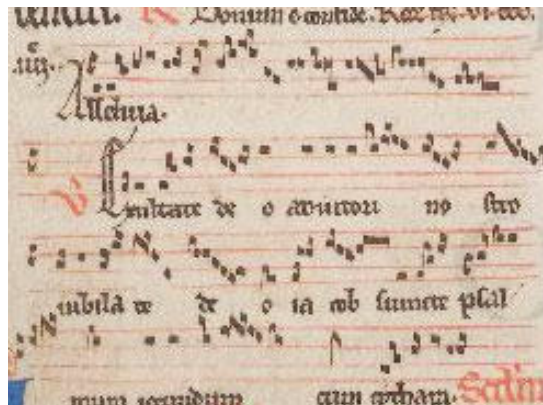 Alleluia.
Exultate deo adiutori nostro
iubilate deo iacob sumite psal
mum iocundum cum cythara.